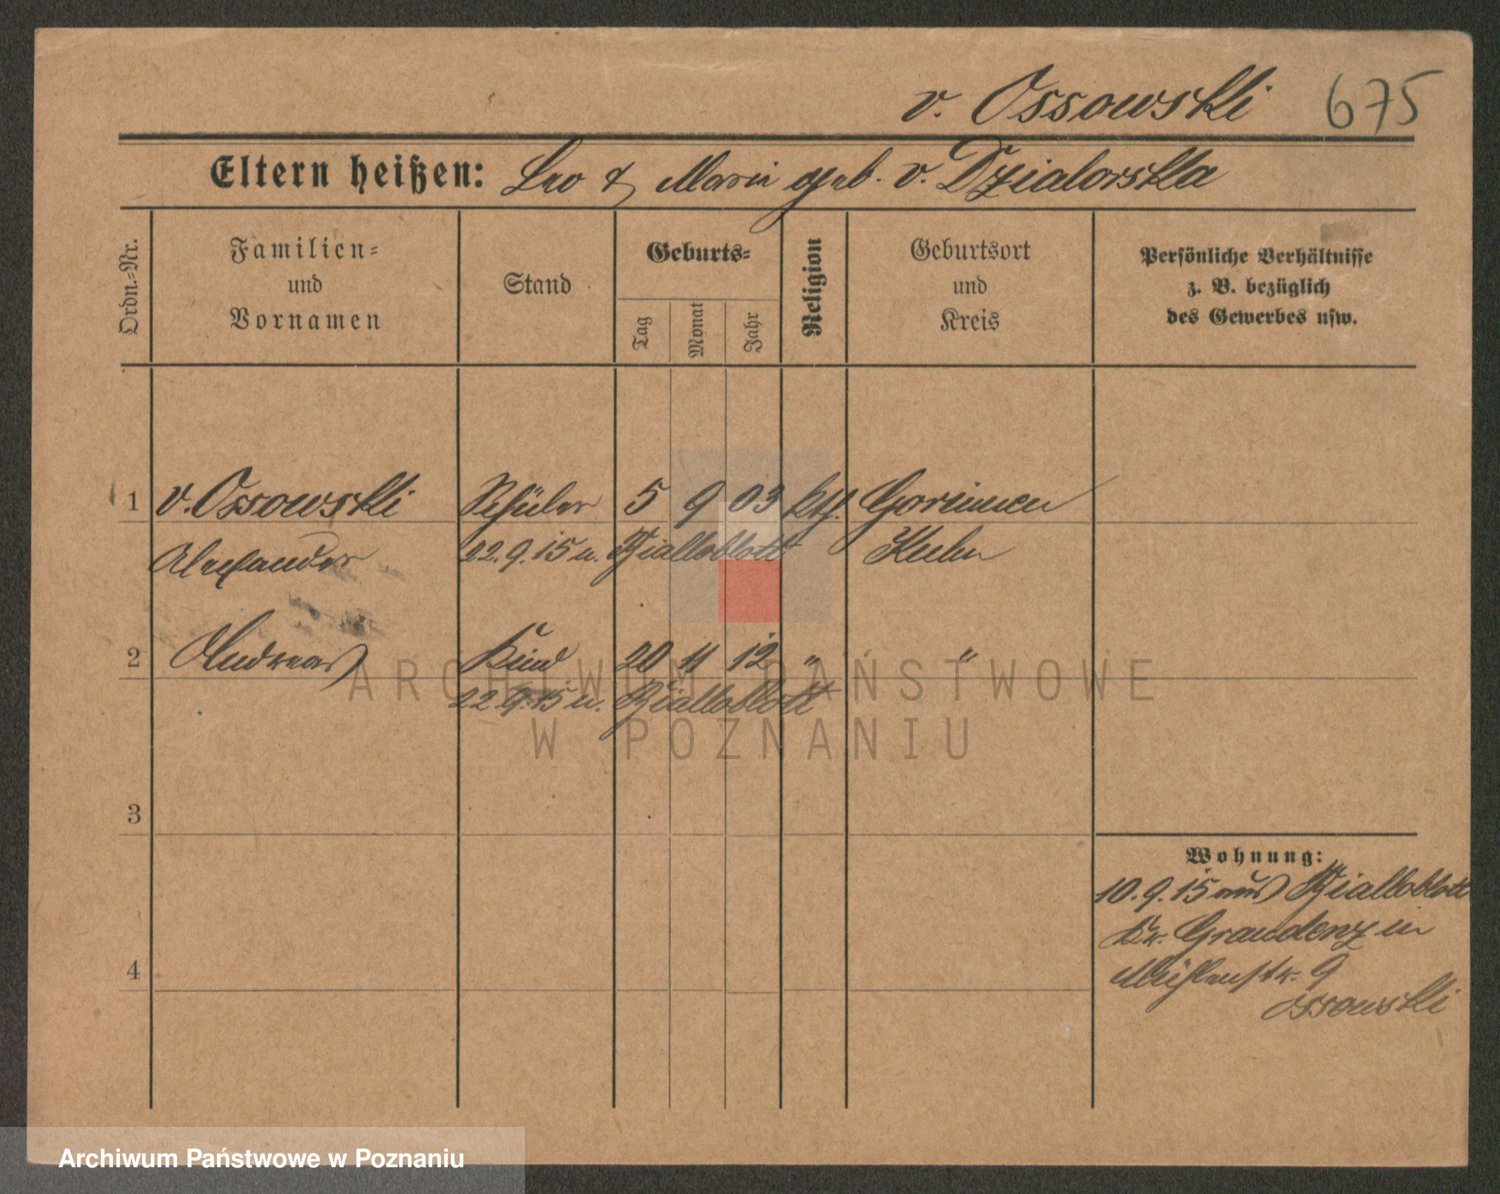 v. Ossowski 675
Eltern heißen: Leo & Marie geb. v. Dzialowska
Ordn.-Nr.
Familien-
und
Vornamen
Stand
Geburts-
Tag
Monat
Jahr
Religion
Geburtsort
und
Kreis
Persönliche Verhältnisse
z. B. bezüglich
des Gewerbes usw.
1 v. Ossowski Schüler 5 9 03 kth.
Alexander 22.9.15 n. Bialloblott Kulm
2 Andreas Kind 20 11 12 " "
22.9.15 n. Bialloblott
3
4
Wohnung:
10.9.15 aus Bialloblott
Kr. Graudenz in
Mühlenstr. 9
Ossowski
ARCHIWUM PAŃSTWOWE
W POZNANIU
Archiwum Państwowe w Poznaniu